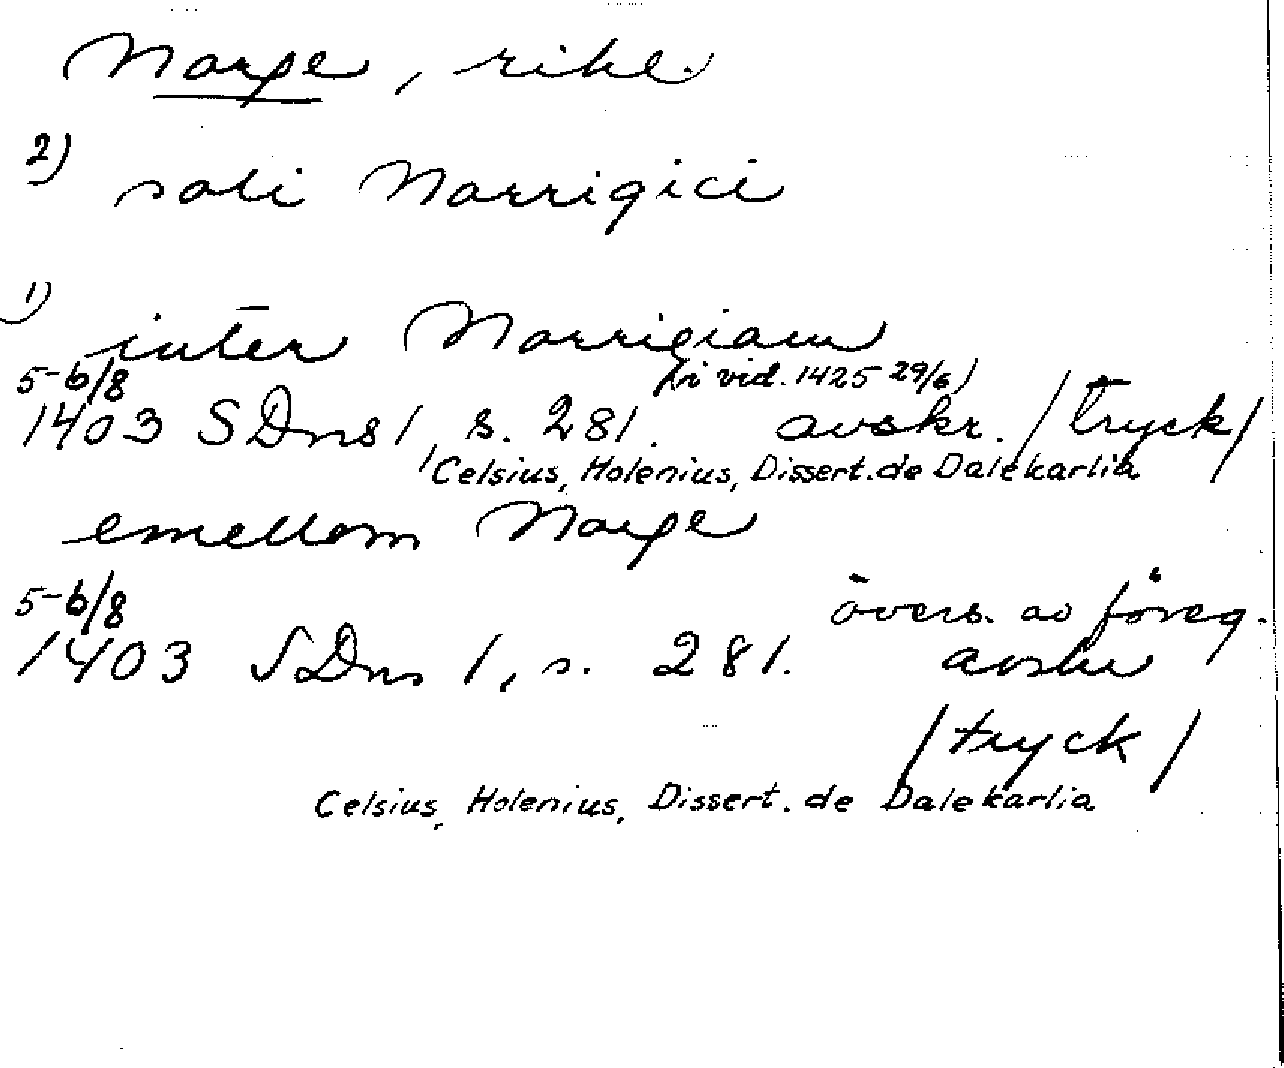 Norge, rike.
2) soli Norrigici
1) inter Norrigiam
5-6/8 (i vid. 1425 29/6)
1403 SDns 1, s. 281. avskr. /tryck/
Celsius, Holenius, Dissert. de Dalekarlia
emellom Norge
5-6/8 övers. av föreg.
1403 SDns 1, s. 281. avskr
/tryck/
Celsius, Holenius, Dissert. de Dalekarlia